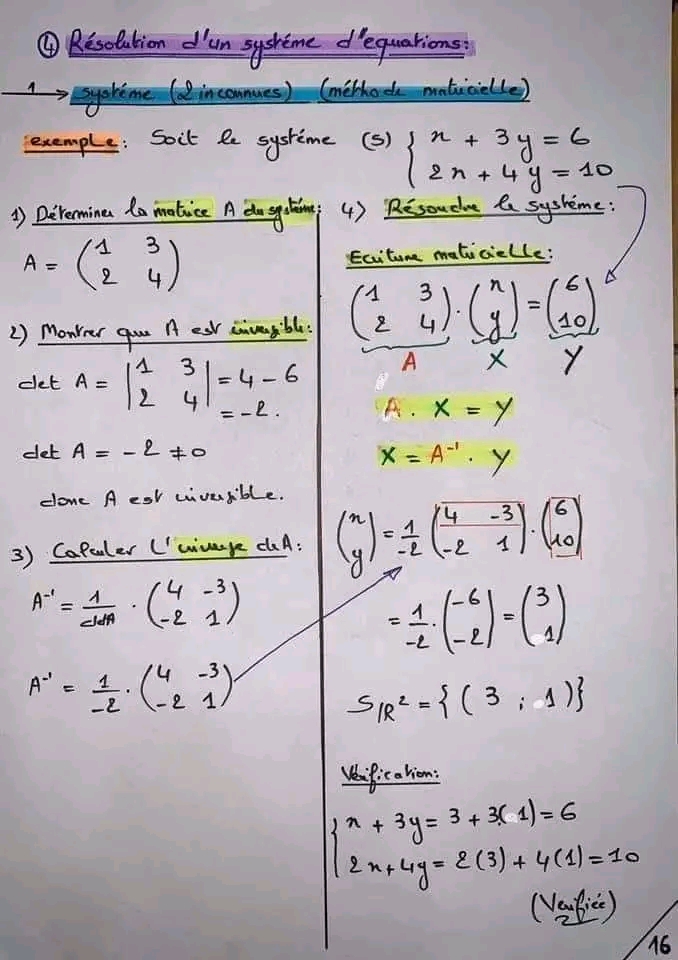 ④ Résolution d'un systéme d'equations:
1 → systéme (2 inconnues) (méthode matricielle)
exemple: Soit le systéme (S) { x + 3y = 6
2x + 4y = 10
1) Déterminer la matrice A du systéme:
A = (1 3
2 4)
2) Montrer que A est inversible:
det A = |1 3
2 4| = 4 - 6
= -2.
det A = -2 ≠ 0
donc A est inversible.
3) Calculer L'inverse de A:
A⁻¹ = 1/detA · (4 -3
-2 1)
A⁻¹ = 1/-2 · (4 -3
-2 1)
4) Résoudre le systéme:
Ecriture matricielle:
(1 3
2 4) · (x
y) = (6
10)
A X Y
A . X = Y
X = A⁻¹ . Y
(x
y) = 1/-2 (4 -3
-2 1) · (6
10)
= 1/-2 · (-6
-2) = (3
1)
S/R² = { ( 3 ; 1 )}
Vérification:
{ x + 3y = 3 + 3( 1) = 6
2x + 4y = 2(3) + 4(1) = 10
(Verifiée)
16